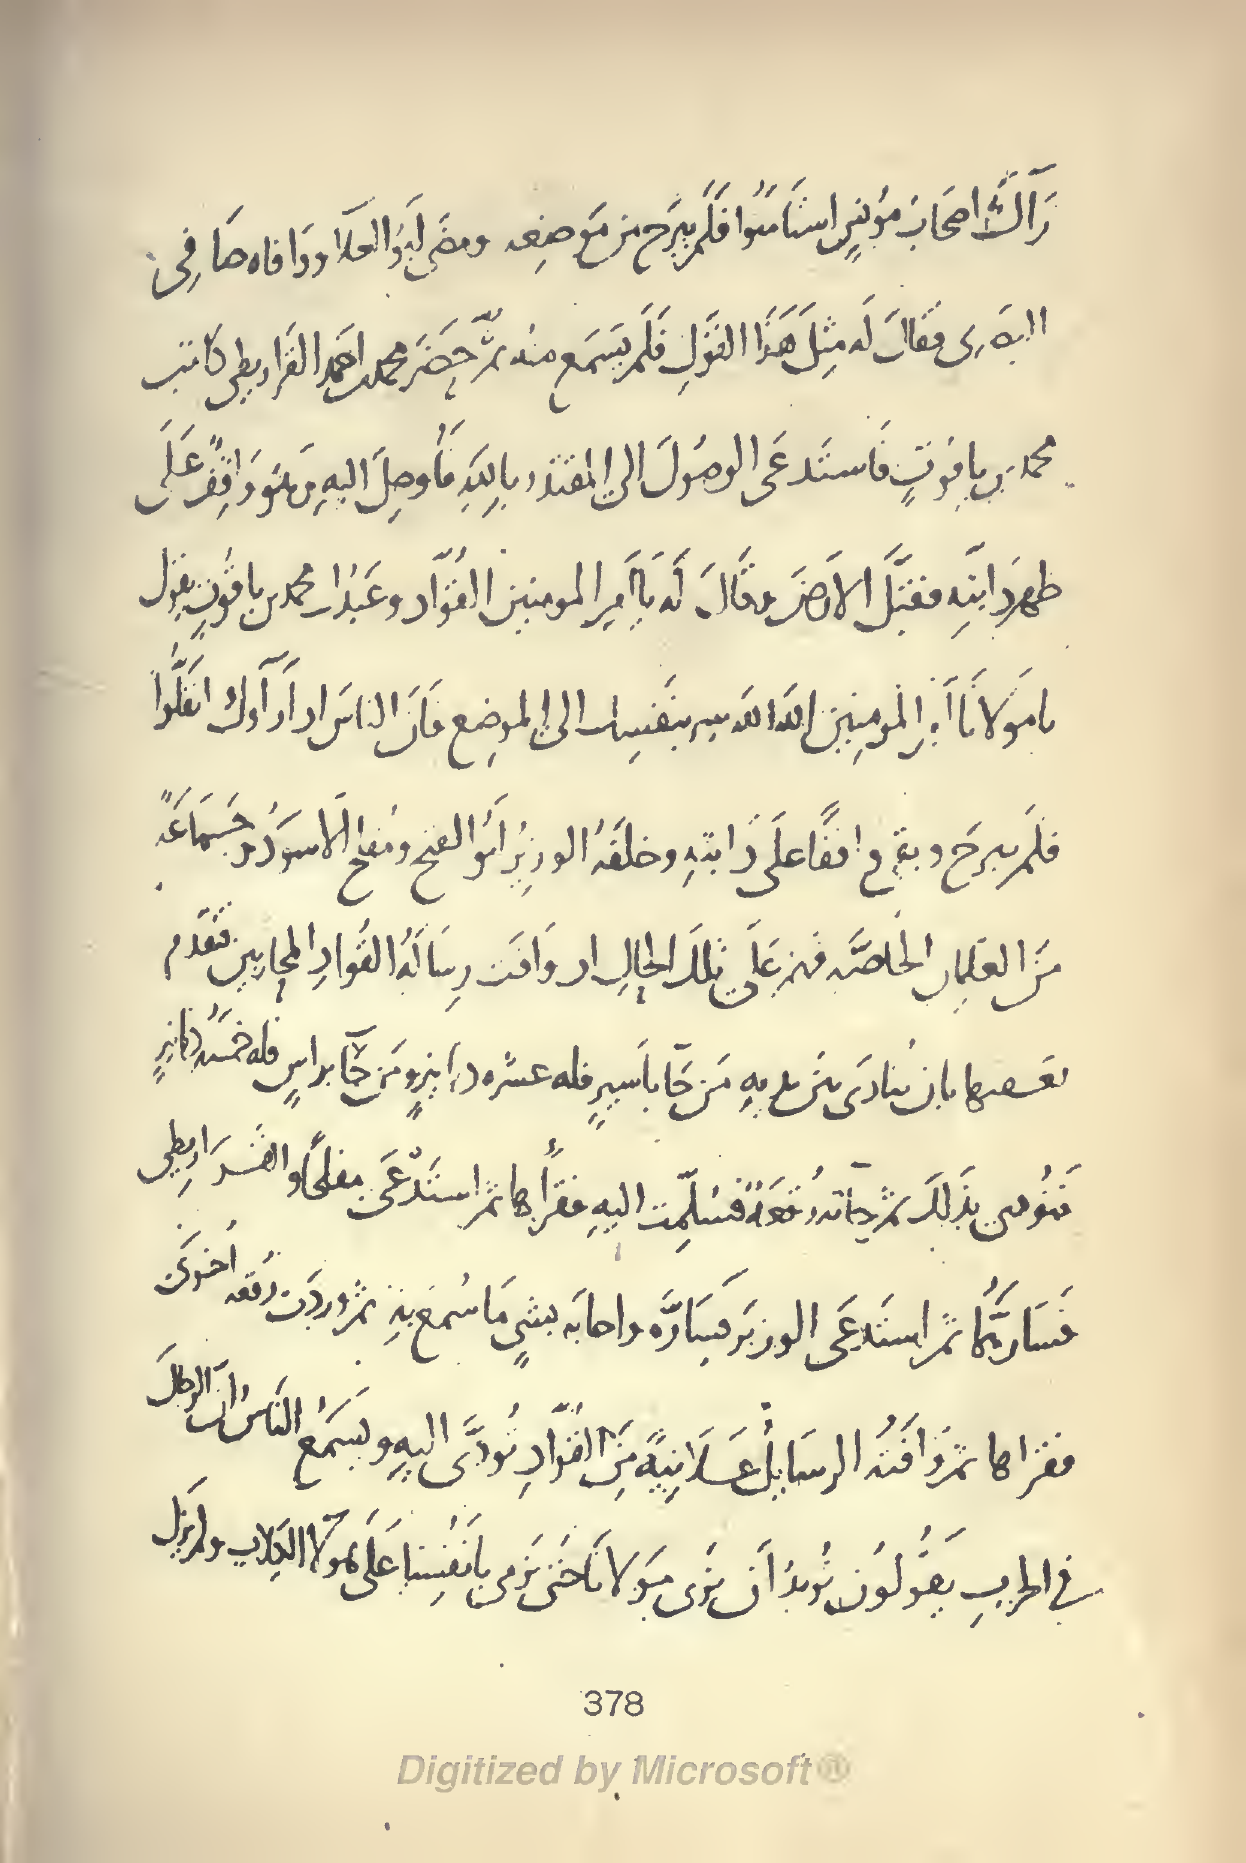 رَآكَ اصحَاب مؤنسٍ استامَنُوا فَلَم يبرَح من مَوضِعِه ومضَى ابُو العلآ ووَافاه صَافِى
البَصرى فقَالَ لَه مثِلَ هَذَا القَولِ فَلَم يَسمَع منه ثمَّ حَضَرَ محمد بن احمَد القَرَاريطى كاتب
محمد بن ياقوتٍ فَاستَدعَى الوصُولَ الى المقتدر باللهِ فَأُوصِلَ اليهِ وهُو وَاقِفٌ عَلَى
ظهر دَابتِهِ فقبَّلَ الارضَ وقَالَ لَه يَا أمير المومنين القُوَّاد وعَبدُك محمد بن ياقُوتٍ يقول
يا مَولانَا أميرِ المومِنين اللهَ اللهَ سِر بنَفسِك الى الموضِع فَانَ الناسَ اذا رَآوك انفَلُّوا
فلَم يبرَح وبقى وَاقفًا علَى دَابتهِ وخلفَهُ الوزِيرُ أبُو الفتح ومُفلح الاسوَدُ وجَمَاعَةٌ
مِنَ الغلِمان الخاصَّه فهم عَلَى تلكَ الحالِ اذ وَافَت رِسَالَةُ القُوادِ المحاربين فتقَدم
بعَضهَا بان يُنادَى بَينَ يديهِ مَن جَآ باَسيرٍ فله عشره دنَانيرٍ ومَن جَآ براسٍ فله خمسَةُ دنانيرٍ
فنُودى بذَلكَ ثم جآته رُقعَةٌ فسُلِّمت اليهِ فقرأها ثم استَدعَى مفلحًا والقَرَاريطى
فَسَارَّهُمَا ثم استَدعَى الوزيرَ فسَارَّه واجابَه بشىٍ مَا سُمعَ بهِ ثم وردَت رُقعَه اُخرَى
فقرَاها ثم وَافَتهُ الرسَايلُ عَلاَنيةً مِنَ القُوادِ تُؤدَّى اليهِ ويسَمَعُ النَاسُ انَّ الرجالَ
فى الحرب يَقُولُون نُريدُ أن نَرَى مَولانَا حَتى نَرمى بأنفُسنا عَلَى هَولآ الكِلابِ ولم يزل
378
Digitized by Microsoft®